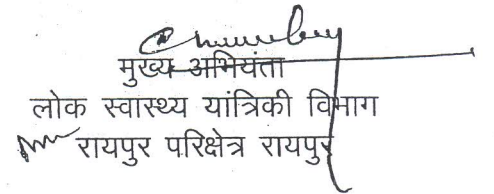 मुख्य अभियंता
लोक स्वास्थ्य यांत्रिकी विभाग
रायपुर परिक्षेत्र रायपुर